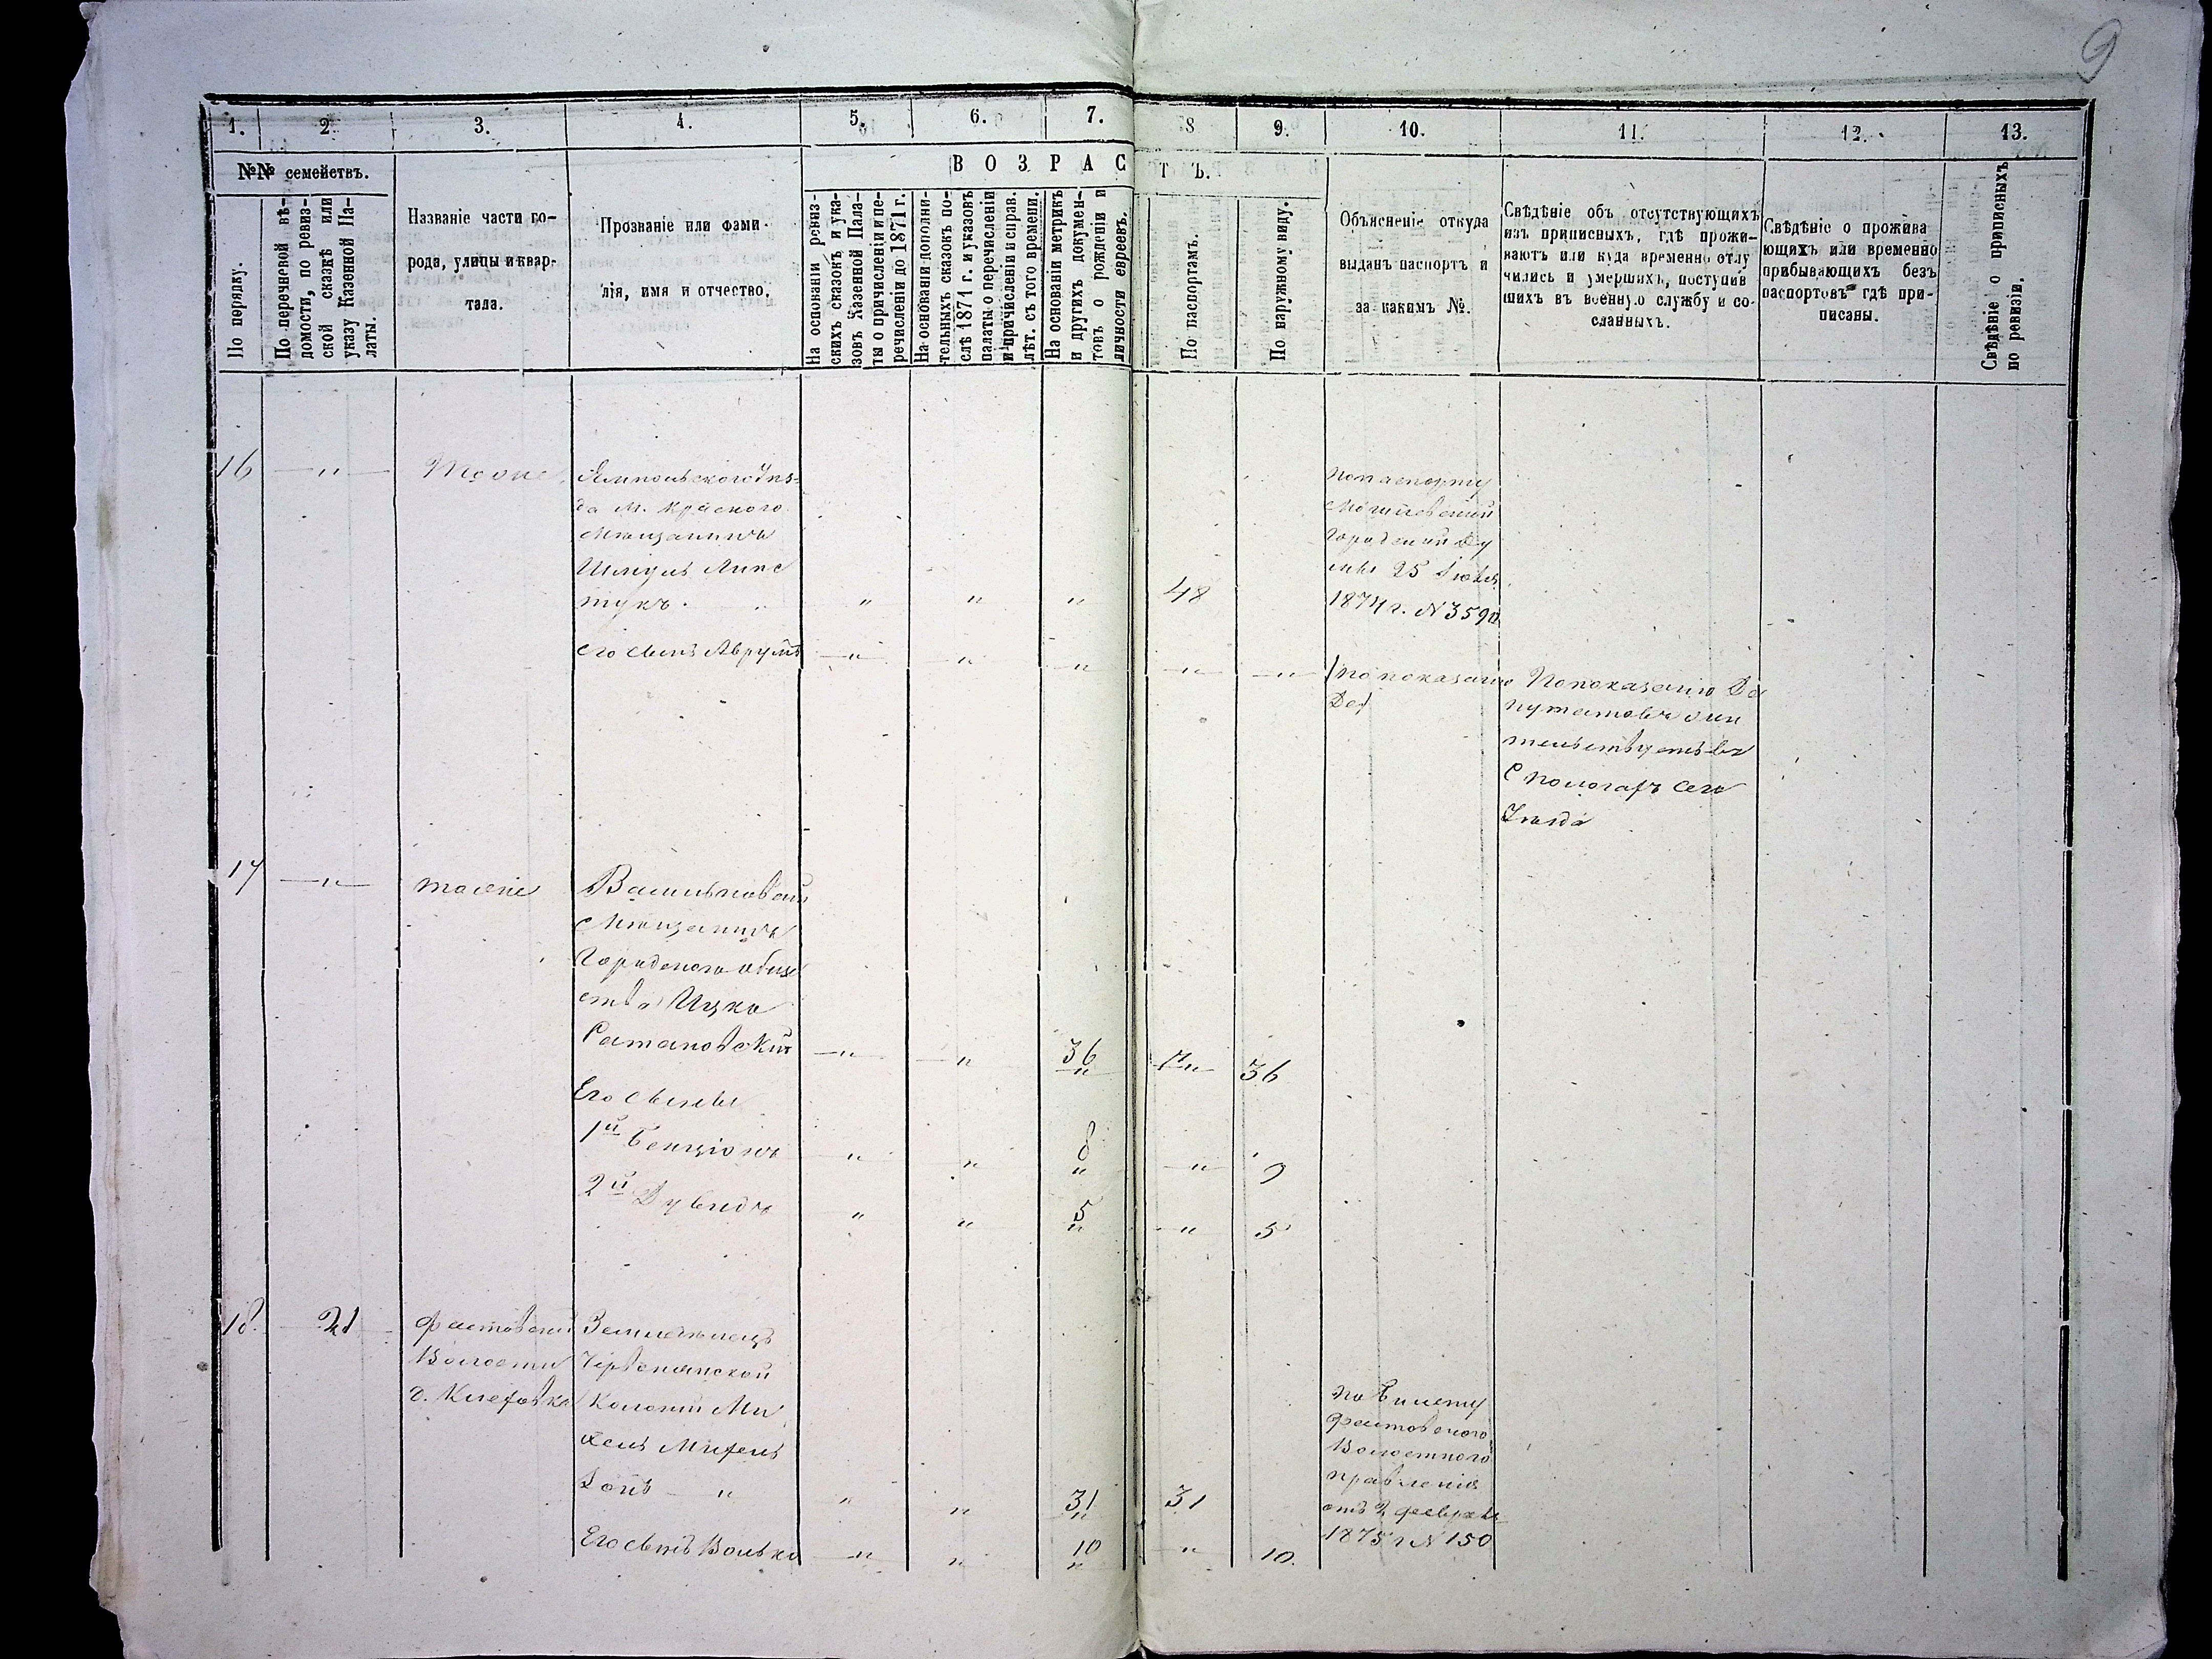 9
1. 2. 3. 4. 5. 6. 7. 8 9. 10. 11. 12. 13.
№№ семействъ.
По порядку.
По перечневой вѣ-
домости, по ревиз-
ской сказкѣ или
указу Казенной Па-
латы.
Названіе части го-
рода, улицы и квар-
тала.
Прозваніе или фами-
лія, имя и отчество.
ВОЗРАСТЪ.
На основаніи ревиз-
скихъ сказокъ и ука-
зовъ Казенной Пала-
ты о причисленіи и пе-
речисленіи до 1871 г.
На основаніи дополни-
тельныхъ сказокъ по-
слѣ 1871 г. и указовъ
палаты о перечисленіи
и причисленіи и справ.
лѣт. съ того времени.
На основаніи метрикъ
и другихъ докумен-
товъ о рожденіи и
личности евреевъ.
По паспортамъ.
По наружному виду.
Объясненіе откуда
выданъ паспортъ и
за какимъ №.
Свѣдѣніе объ отсутствующихъ
изъ приписныхъ, гдѣ прожи-
ваютъ или куда временно отлу
чились и умершихъ, поступив
шихъ въ военную службу и со-
сланныхъ.
Свѣдѣніе о прожива
ющихъ или временно
прибывающихъ безъ
паспортовъ гдѣ при-
писаны.
Свѣдѣніе о приписныхъ
по ревизіи.
16 — " —
Ямпольского Уѣз-
да М. Красного
Мѣщанинъ
Шмуль Липс
тукъ. " " " 48
По паспорту
Могилевской
Городской Ду
мы 25 Іюля
1874 г. № 3590
его сынъ Аврумъ — " — " " — " — — " —
по показанію
Деп
По показанію Де
путатовъ жи
тельствуетъ въ
сего
Уѣзда
17 — " — тоже
Васильковскій
Мѣщанинъ
Городского общ
ства Ицко
Ратановскій — " — " 36 " — " — 36
Его сыновья
1й Бенціонъ " " 8 " — " — 9
2й Дувидъ " " 5 " — " 5
18. 21
Фастовской
Волости
Земледѣлецъ
Червленской
Колоніи Ми
хель
" " " 31 " 31
по билету
Фастовского
Волостного
правленія
отъ 2 февраля
1875 г № 150
Его сынъ Волько — " — " 10 " " 10.